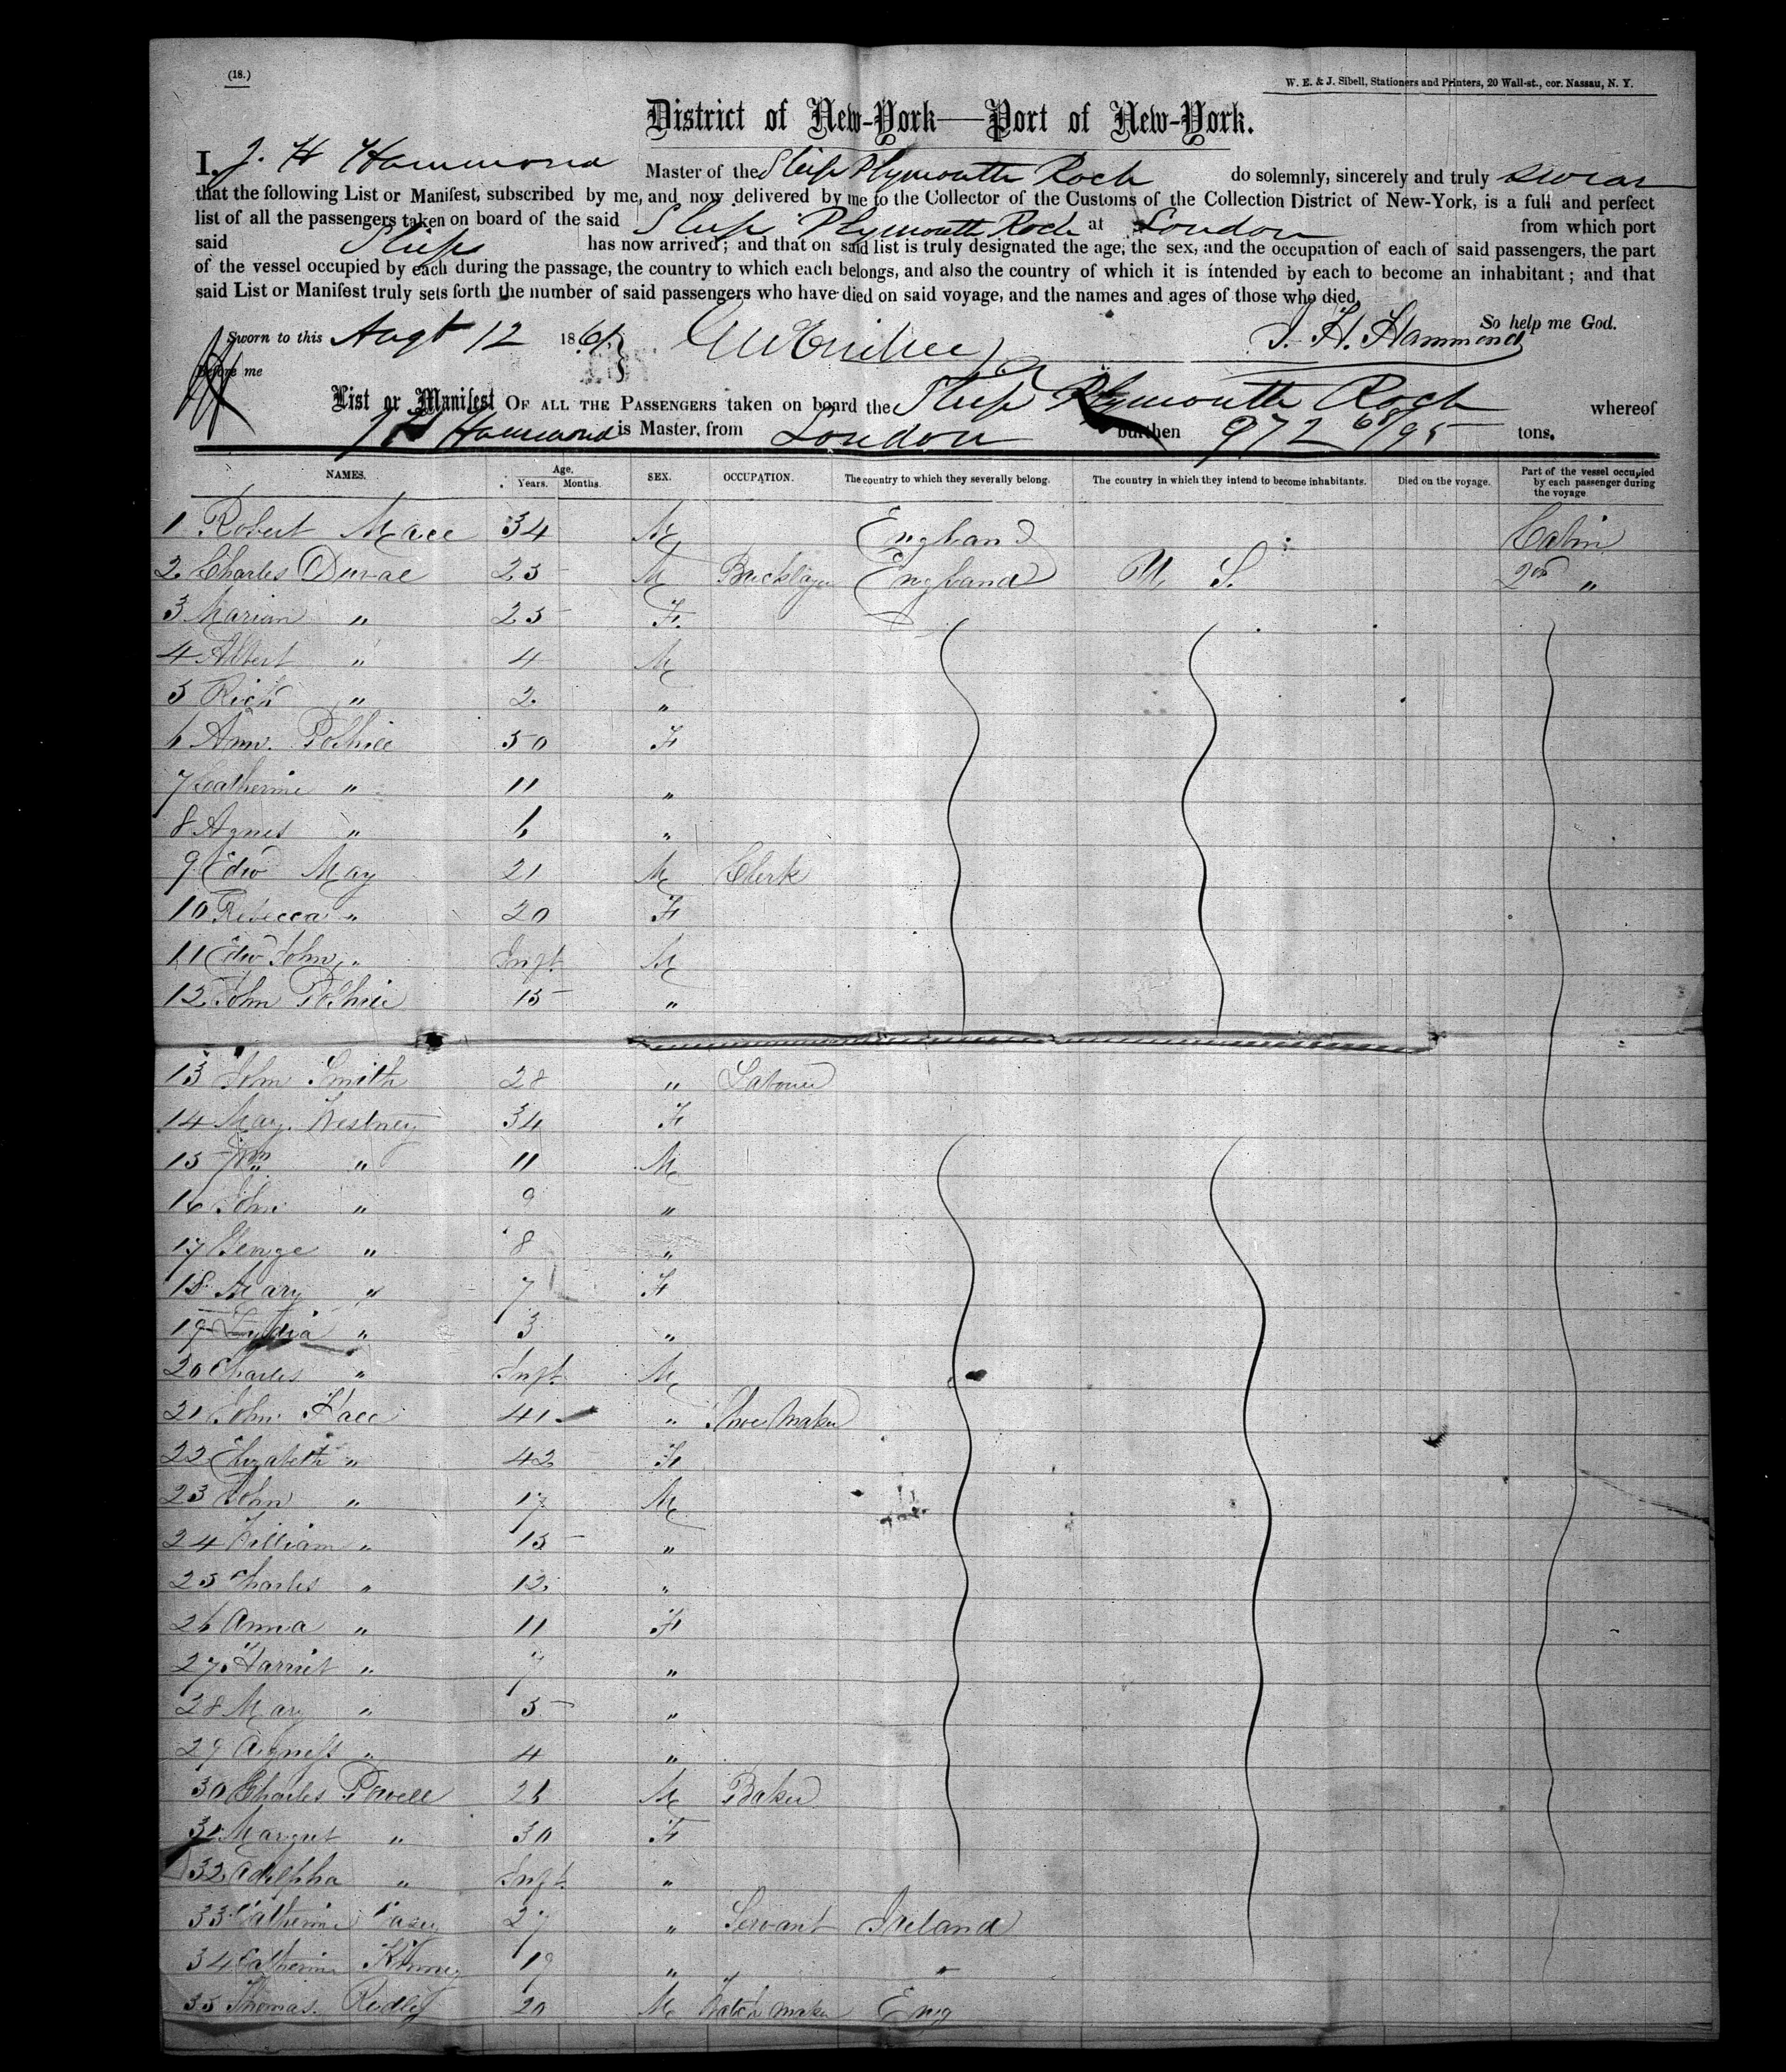 (18.)
W. E. & J. Sibell, Stationers and Printers, 20 Wall-st., cor. Nassau, N. Y.
District of New-York—Port of New-York.
I, J. H Hammond Master of the Ship Plymouth Rock do solemnly, sincerely and truly swear
that the following List or Manifest, subscribed by me, and now delivered by me to the Collector of the Customs of the Collection District of New-York, is a full and perfect
list of all the passengers taken on board of the said Ship Plymouth Rock at London from which port
said Ship has now arrived; and that on said list is truly designated the age, the sex, and the occupation of each of said passengers, the part
of the vessel occupied by each during the passage, the country to which each belongs, and also the country of which it is intended by each to become an inhabitant; and that
said List or Manifest truly sets forth the number of said passengers who have died on said voyage, and the names and ages of those who died.
So help me God.
Sworn to this Augt 12 1861 J. H. Hammond
Before me
List or Manifest OF ALL THE PASSENGERS taken on board the Ship Plymouth Rock whereof
J H Hammond is Master, from London burthen 972 68/95 tons.
NAMES. Age. Years. Months. SEX. OCCUPATION. The country to which they severally belong. The country in which they intend to become inhabitants. Died on the voyage. Part of the vessel occupied by each passenger during the voyage
1 Robert Mace 34 M England Cabin
2 Charles Duval 25 M Bricklayer England U S. 2nd "
3 Marian " 25 F.
4 Albert " 4 M
5 Rich " 2 "
6 Ann Pothill 50 F
7 Catherine " 11 "
8 Agnes " 6 "
9 Edw May 21 M Clerk
10 Rebecca " 20 F
11 Edw John " Inft M
12 John Pothill 15 "
13 John Smith 28 " Labourer
14 Mary Westney 34 F
15 Wm " 11 M
16 John " 9 "
17 George " 8 "
18 Mary " 7 F
19 Lydia " 3 "
20 Charles " Inft M
21 John 41 " Shoe Maker
22 Elizabeth " 42 F
23 John " 17 M
24 William " 15 "
25 Charles " 12 "
26 Anna " 11 F
27 Harriet " 7 "
28 Mary " 5 "
29 Agness " 4 "
30 Charles Powell 26 M Baker
31 Margret " 30 F
32 Adelpha " Inft "
33 Catherine Casey 27 " Servant Ireland
34 Catherine Kinney 19 " " "
35 Thomas Ridley 20 M Watch maker Eng